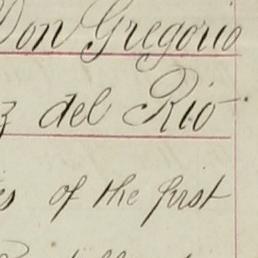 Don Gregorio
z del Rio
es of the first